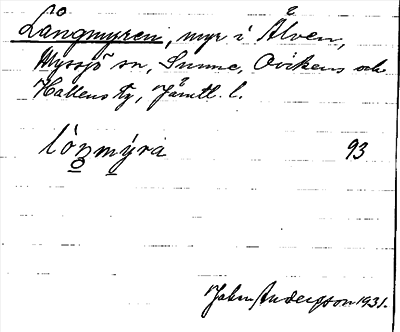 Långmyren, myr i Ålven,
Myssjö sn, Sunne, Ovikens och
Hallens tg, Jämtl. l.
lóŋmýra 93
John Andersson 1931.